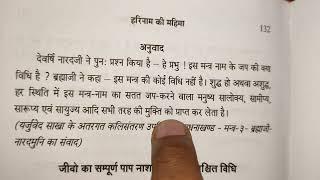 हरिनाम की महिमा
132
अनुवाद
देवर्षि नारदजी ने पुनः प्रश्न किया है – हे प्रभु ! इस मन्त्र नाम के जप की क्या
विधि है ? ब्रह्माजी ने कहा – इस मन्त्र की कोई विधि नहीं है। शुद्ध हो अथवा अशुद्ध,
हर स्थिति में इस मन्त्र-नाम का सतत जप-करने वाला मनुष्य सालोक्य, सामीप्य,
सारूप्य एवं सायुज्य आदि सभी तरह की मुक्ति को प्राप्त कर लेता है।
(यर्जुवेद साखा के अतरगत कलिसंतरण उप खण्ड - मन्त्र-३- ब्रह्माजी-
नारदमुनि का संवाद)
जीवो का सम्पूर्ण पाप नाश विधि